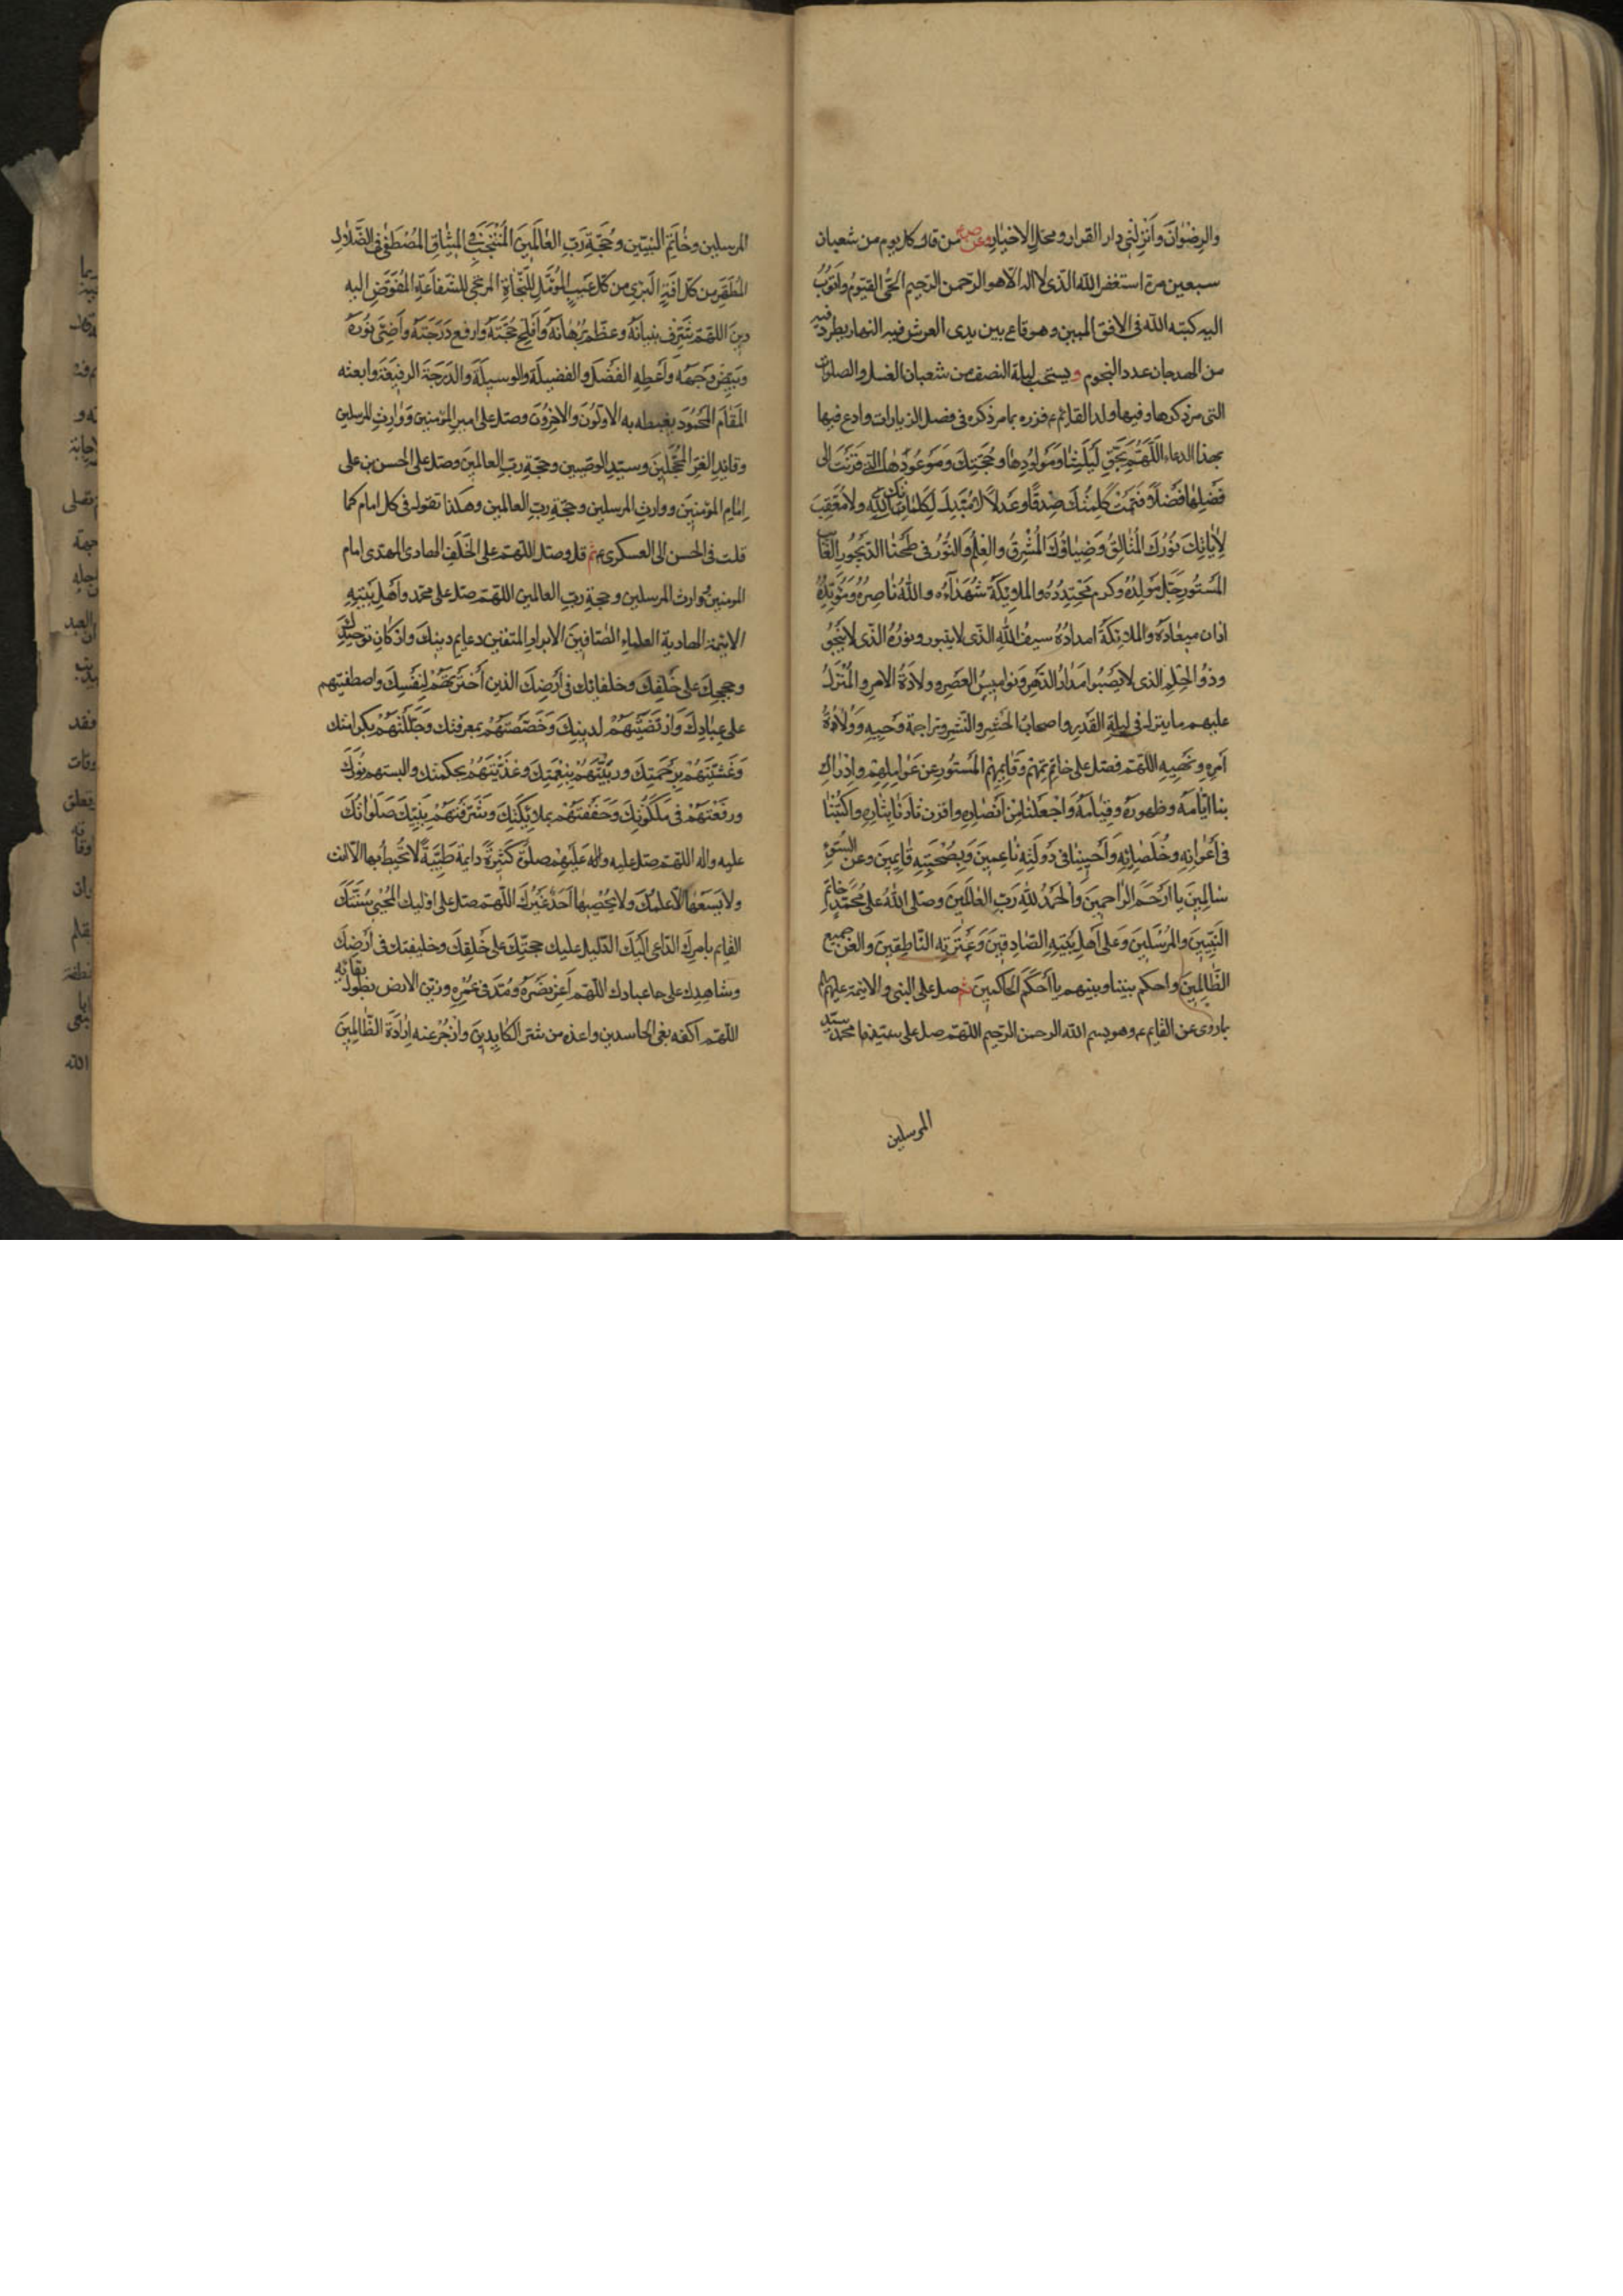 والرضوان وانزلني دار القرار ومحل الاخيار وعن ص ع من قال كل يوم من شعبان
سبعين مرة استغفر الله الذى لا اله الا هو الرحمن الرحيم الحي القيوم واتوب
اليه كتبه الله فى الافق المبين وهو قاع بين يدى العرش فيه انهار يطرد فيه
من القدحان عدد النجوم ويستحب ليلة النصف من شعبان الغسل والصلوات
التى مر ذكرها وفيها ولد القائم ع م فزره بما مر ذكره فى فصل الزيارات وادع فيها
بهذا الدعاء اللهم بحق ليلتنا ومولودها وحجتك وموعودها التي قرنت الى
فضلها فضلا فتمت كلمتك صدقا وعدلا لا مبدل لكلماتك ولا معقب
لاياتك نورك المتالق وضياؤك المشرق والعلم والنور فى طخياء الديجور الغائب
المستور جل مولده وكرم محتده والملائكة شهداؤه والله ناصره ومؤيده
اذا ان ميعاده والملائكة امداده سيف الله الذى لا ينبو ونوره الذى لا يخبو
وذو الحلم الذى لا يصبو مدار الدهر ونواميس العصر وولاة الامر والمنزل
عليهم ما يتنزل فى ليلة القدر واصحاب الحشر والنشر وتراجمة وحيه وولاة
امره ونهيه اللهم فصل على خاتمهم وقائمهم المستور عن عوالمهم وادراك
بنا ايامه وظهوره وقيامه واجعلنا من انصاره واقرن ثارنا بثاره واكتبنا
فى اعوانه وخلصائه واحينا فى دولته ناعمين وبصحبته قايمين وعن السوء
سالمين يا ارحم الراحمين والحمد لله رب العالمين وصلى الله على محمد خاتم
النبيين والمرسلين وعلى اهل بيته الصادقين وعترته الناطقين والعن جميع
الظالمين واحكم بيننا وبينهم يا احكم الحاكمين ثم صل على النبى والائمة عليهم
بما روى عن القايم ع م وهو بسم الله الرحمن الرحيم اللهم صل على سيدنا محمد سيد
المرسلين
المرسلين وخاتم النبيين وحجة رب العالمين المنتجب فى الميثاق المصطفى فى الضلال
المطهر من كل افة البرى من كل عيب المؤمل للنجاة المرتجى للشفاعة المفوض اليه
دين الله اللهم شرف بنيانه وعظم برهانه وافلح حجته وارفع درجته واضئ نوره
وبيض وجهه واعطه الفضل والفضيلة والوسيلة والدرجة الرفيعة وابعثه
المقام المحمود يغبطه به الاولون والاخرون وصل على امير المؤمنين ووارث المرسلين
وقايد الغر المحجلين وسيد الوصيين وحجة رب العالمين وصل على الحسن بن على
امام المؤمنين ووارث المرسلين وحجة رب العالمين وهكذا تقول فى كل امام كما
قلت فى الحسن الى العسكرى ع م ثم قل وصل اللهم على الخلف الهادى المهدى امام
المومنين ووارث المرسلين وحجة رب العالمين اللهم صل على محمد واهل بيته
الائمة الهادية العلماء الصادقين الابرار المتقين دعايم دينك واركان توحيدك
وحججك على خلقك وخلفائك فى ارضك الذين اخترتهم لنفسك واصطفيتهم
على عبادك وارتضيتهم لدينك وخصصتهم بمعرفتك وجللتهم بكرامتك
وغشيتهم برحمتك وربيتهم بنعمتك وغذيتهم بحكمتك والبستهم نورك
ورفعتهم فى ملكوتك وحففتهم بملائكتك وشرفتهم بنبيك صلواتك
عليه واله اللهم صل عليه واله عليهم صلوة كثيرة دايمة طيبة لا يحيط بها الا انت
ولا يسعها الا علمك ولا يحصيها احد غيرك اللهم صل على وليك المحيى سنتك
القايم بامرك الداعى اليك الدليل عليك حجتك على خلقك وخليفتك فى ارضك
وشاهدك على عبادك اللهم اعز نصره ومد فى عمره وزين الارض بطول بقائه
اللهم اكفه بغى الحاسدين واعذه من شر الكايدين وازجر عنه ارادة الظالمين